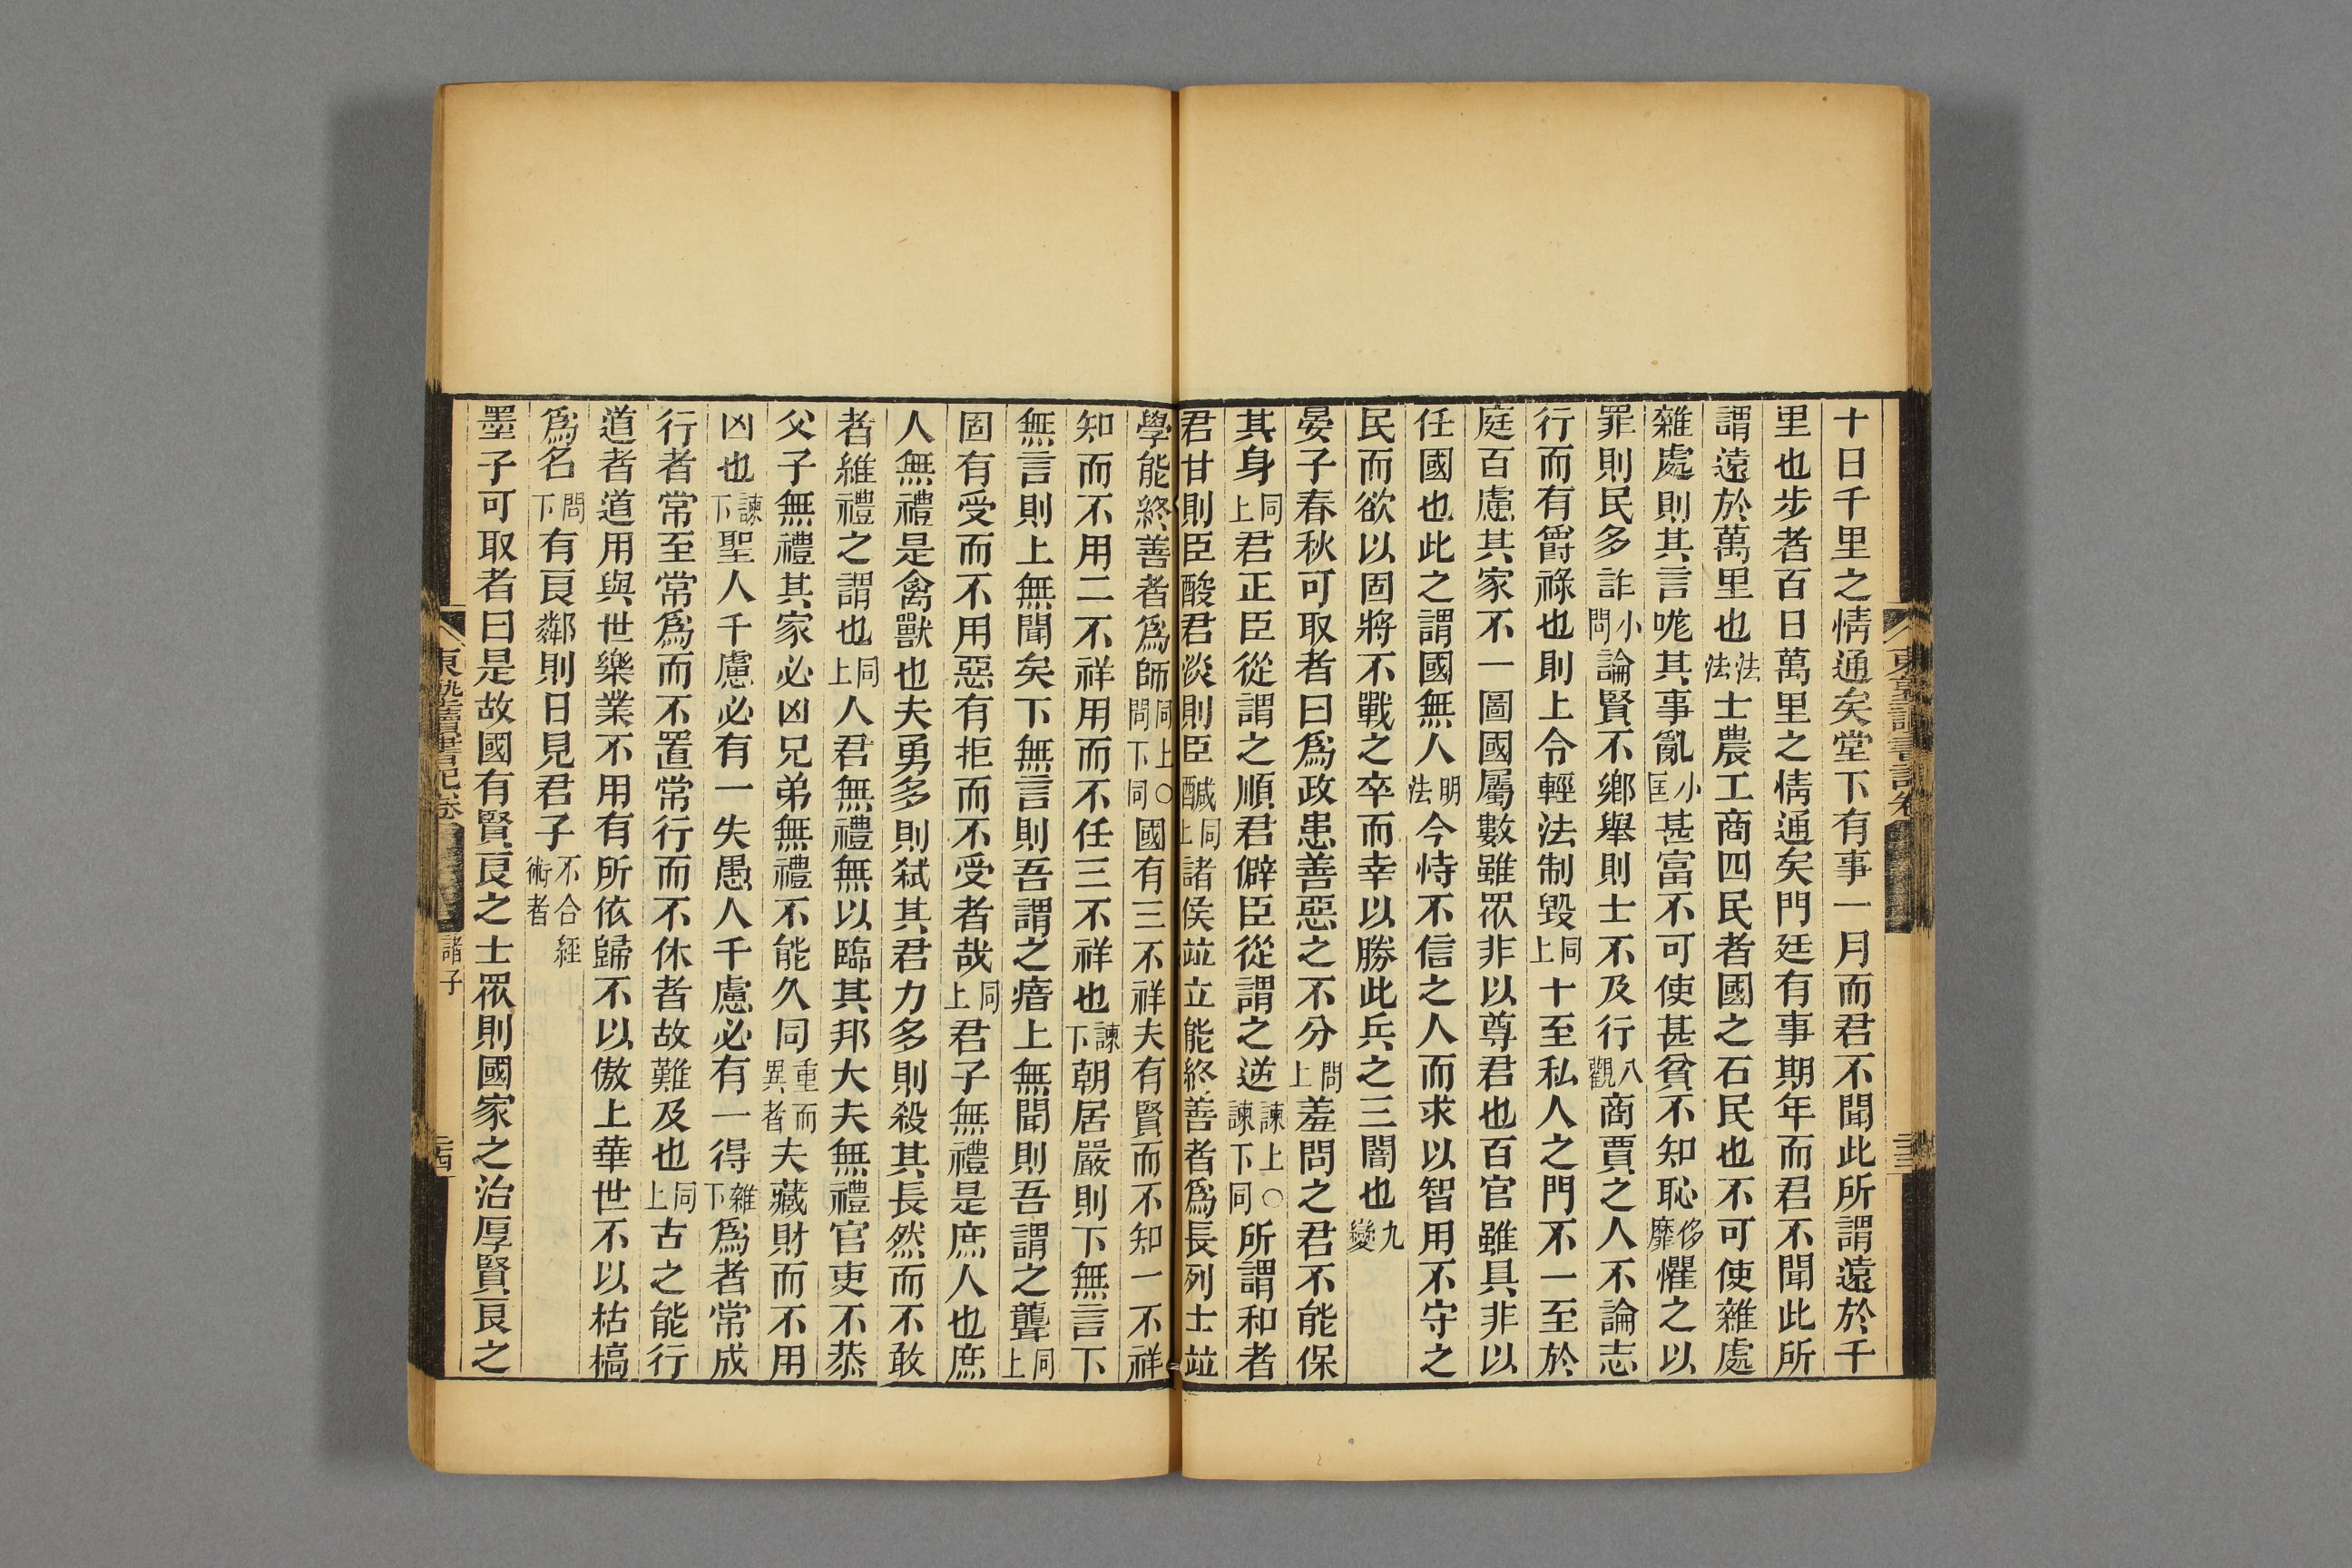 十日千里之情通矣堂下有事一月而君不聞此所謂遠於千
里也步者百日萬里之情通矣門廷有事期年而君不聞此所
謂遠於萬里也法法士農工商四民者國之石民也不可使雜處
雜處則其言哤其事亂小匡甚富不可使甚貧不知恥侈靡懼之以
罪則民多詐小問論賢不鄉舉則士不及行八觀商賈之人不論志
行而有爵祿也則上令輕法制毀同上十至私人之門不一至於
庭百慮其家不一圖國屬數雖眾非以尊君也百官雖具非以
任國也此之謂國無人明法今恃不信之人而求以智用不守之
民而欲以固將不戰之卒而幸以勝此兵之三闇也九變
晏子春秋可取者曰爲政患善惡之不分問上羞問之君不能保
其身同上君正臣從謂之順君僻臣從謂之逆諫上〇諫下同所謂和者
君甘則臣酸君淡則臣鹹同上諸侯竝立能終善者爲長列士竝
學能終善者爲師同上〇問下同國有三不祥夫有賢而不知一不祥
知而不用二不祥用而不任三不祥也諫下朝居嚴則下無言下
無言則上無聞矣下無言則吾謂之瘖上無聞則吾謂之聾同上
固有受而不用惡有拒而不受者哉同上君子無禮是庶人也庶
人無禮是禽獸也夫勇多則弒其君力多則殺其長然而不敢
者維禮之謂也同上人君無禮無以臨其邦大夫無禮官吏不恭
父子無禮其家必凶兄弟無禮不能久同重而異者夫藏財而不用
凶也諫下聖人千慮必有一失愚人千慮必有一得雜下爲者常成
行者常至常爲而不置常行而不休者故難及也同上古之能行
道者道用與世樂業不用有所依歸不以傲上華世不以枯槁
爲名問下有良鄰則日見君子不合經術者
墨子可取者曰是故國有賢良之士眾則國家之治厚賢良之
東塾讀書記卷
諸子
二十四